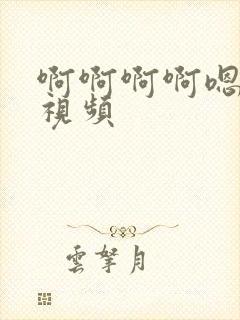 啊啊啊啊嗯
視頻
雲拏月